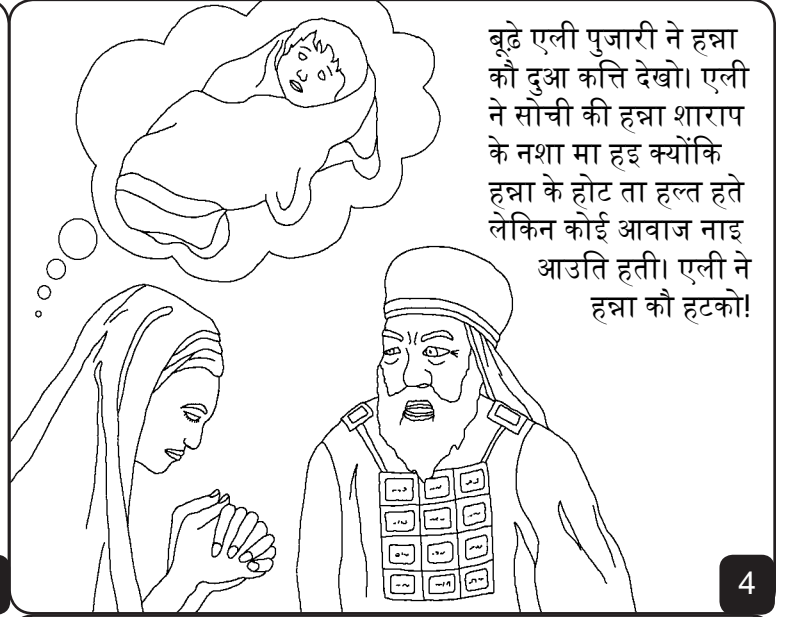 बूढ़े एली पुजारी ने हन्ना
कौ दुआ कत्ति देखो। एली
ने सोची की हन्ना शाराप
के नशा मा हइ क्योंकि
हन्ना के होट ता हल्त हते
लेकिन कोई आवाज नाइ
आउति हती। एली ने
हन्ना कौ हटको!
4